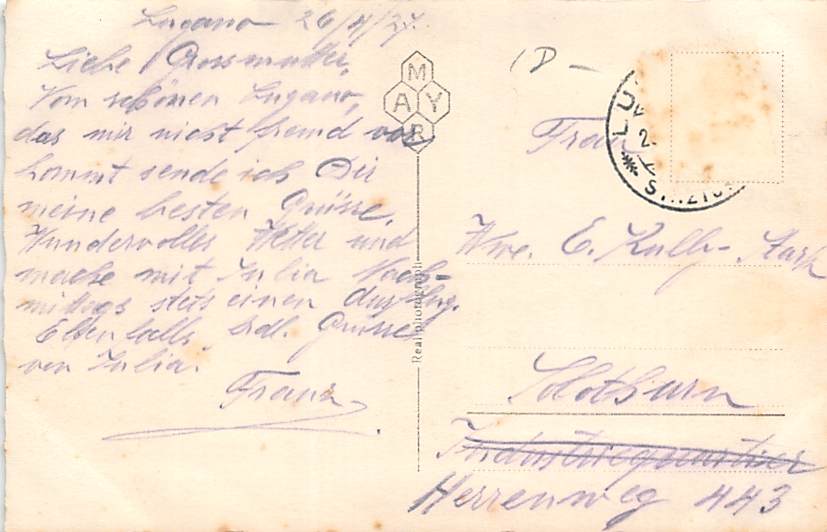 Lugano 26/4/27.
Liebe Grossmutter,
Vom schönen Lugano,
das mir nicht fremd vor
kommt sende ich Dir
meine besten Grüsse.
Wundervolles Wetter und
mache mit Julia Nach-
mittags stets einen Ausflug.
Ebenfalls frdl. Grüsse
von Julia.
Franz
MAYR
Real photograph
Frau
Wwe. E. Kully-Stark
Solothurn
Industriequartier
Herrenweg 443